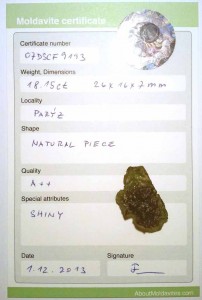 Moldavite certificate
Certificate number
07D3CF9193
Weight, Dimensions
18.15ct 24x16x7mm
Locality
Shape
NATURAL PIECE
Quality
A++
Special attributes
SHINY
Date
Signature
1.12.2013
AboutMoldavites.com